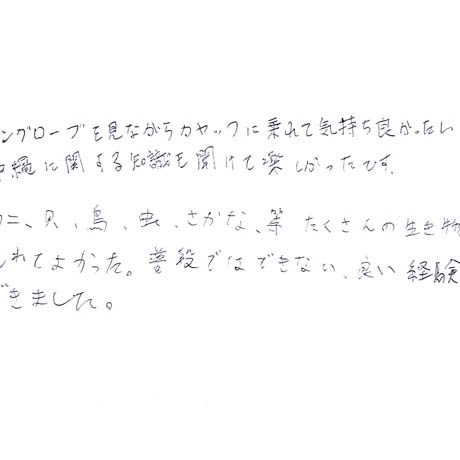 ングローブを見ながらカヤックに乗れて気持ち良かったい
縄に関する知識も聞けて楽しかったです.
カニ、貝、鳥、虫、さかな、等 たくさんの生き物
れてよかった。普段ではできない、良い経験
できました。